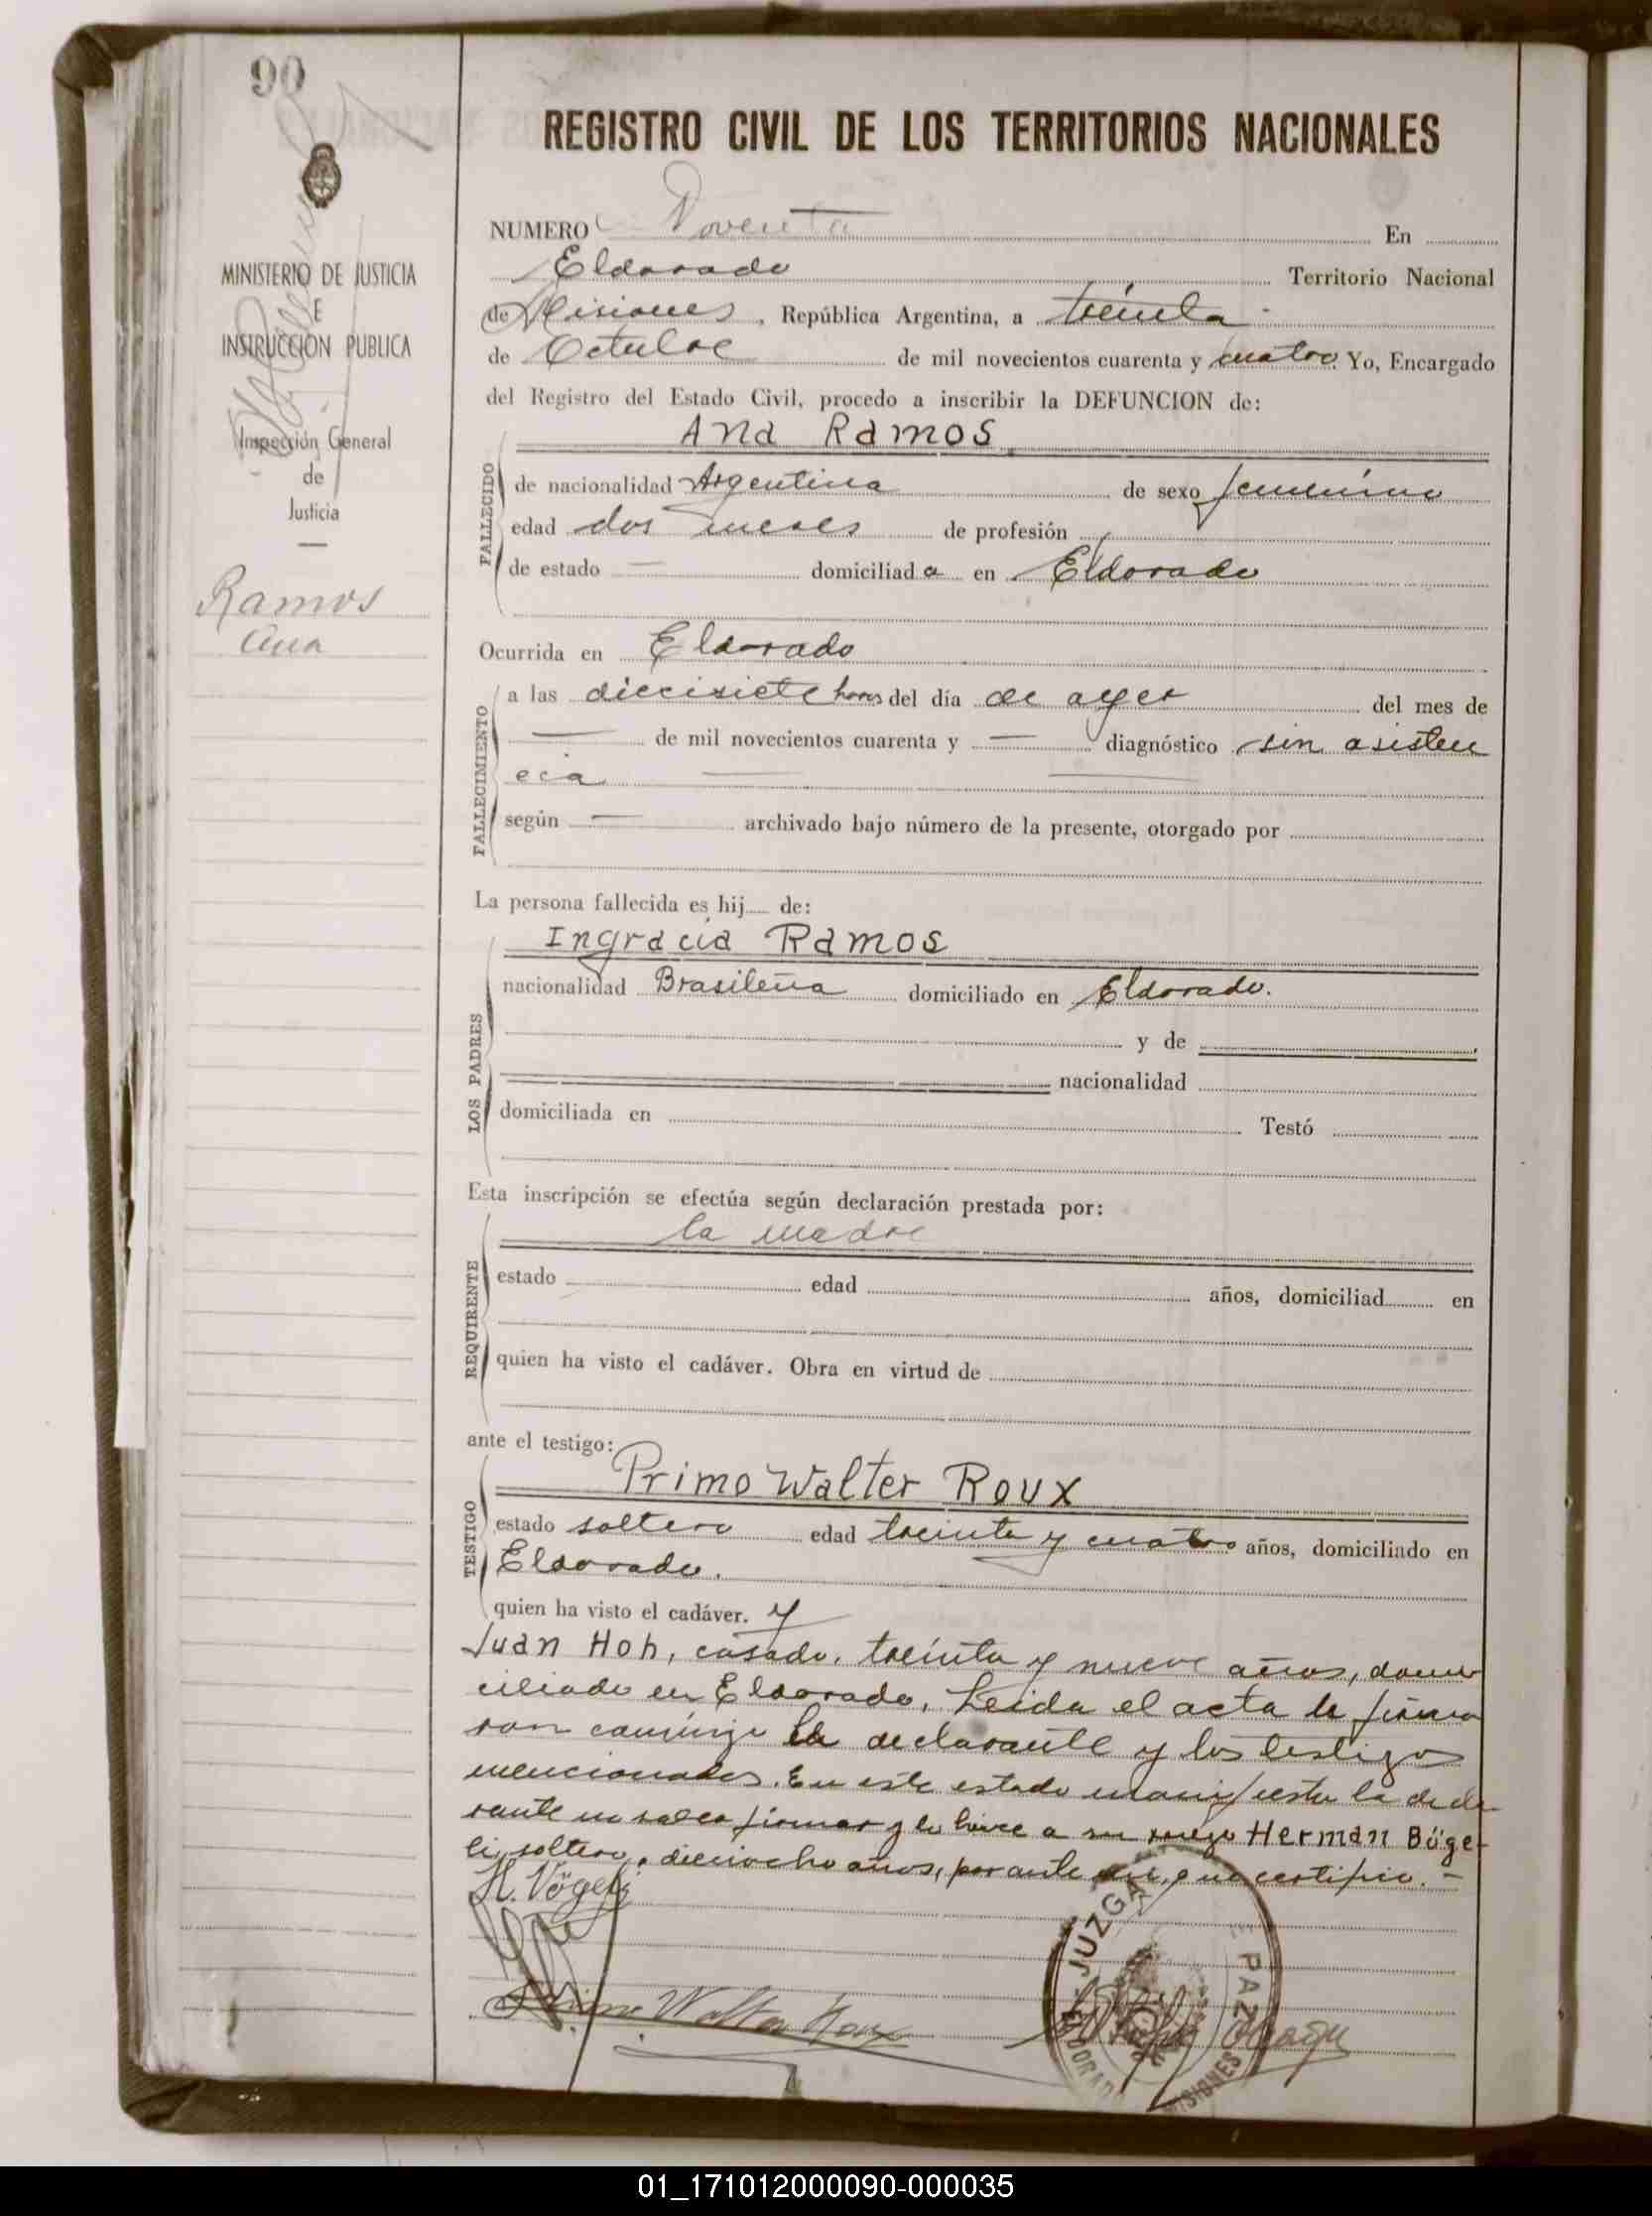 90
REGISTRO CIVIL DE LOS TERRITORIOS NACIONALES
MINISTERIO DE JUSTICIA
E
INSTRUCCIÓN PUBLICA
Inspección General
de
Justicia
Ramos
Ana
NUMERO Noventa En
Eldorado Territorio Nacional
de Misiones, República Argentina, a treinta
de Octubre de mil novecientos cuarenta y cuatro. Yo, Encargado
del Registro del Estado Civil, procedo a inscribir la DEFUNCION de:
Ana Ramos
FALLECIDO
de nacionalidad Argentina de sexo femenino
edad dos meses de profesión
de estado — domiciliada en Eldorado
Ocurrida en Eldorado
FALLECIMIENTO
a las diecisiete horas del día de ayer del mes de
— de mil novecientos cuarenta y — diagnóstico sin asisten
cia
según — archivado bajo número de la presente, otorgado por
La persona fallecida es hij de:
LOS PADRES
Ingracia Ramos
nacionalidad Brasileña domiciliado en Eldorado.
y de
nacionalidad
domiciliada en Testó
Esta inscripción se efectúa según declaración prestada por:
REQUIRENTE
la madre
estado edad años, domiciliad en
quien ha visto el cadáver. Obra en virtud de
ante el testigo:
TESTIGO
Primo Walter Roux
estado soltero edad treinta y cuatro años, domiciliado en
Eldorado.
quien ha visto el cadáver. y
Juan Hoh, casado, treinta y nueve años, domi
ciliado en Eldorado. Leida el acta la firma
ron conmigo la declarante y los testigos
mencionados. En este estado manifiesta la decla
rante no saber firmar y lo hace a su ruego Herman Böge
li, soltero, dieciocho años, por ante mi, que certifico. —
H. Vögeli
Primo Walter Roux
JUZGA E PAZ
ELDORAD MISIONES
01_171012000090-000035